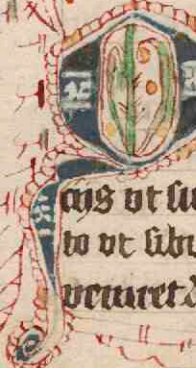 cus vt su
to vt sibi
veniret &